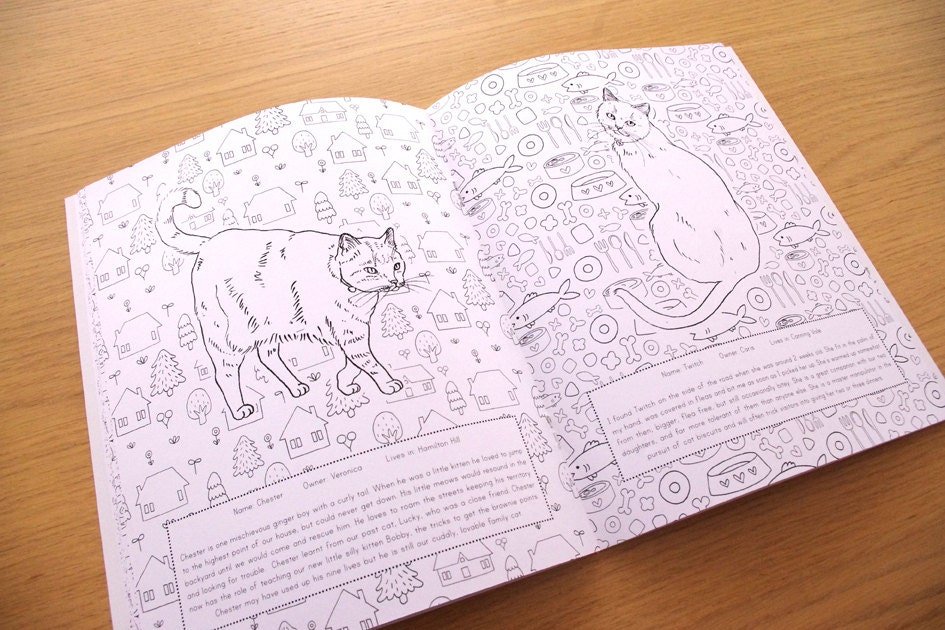 Name: Chester Owner: Veronica Lives in: Hamilton Hill
Chester is one mischievous ginger boy with a curly tail. When he was a little kitten he loved to jump
to the highest point of our house, but could never get down. His little meows would resound in the
backyard until we would come and rescue him. He loves to roam the streets keeping his territory
and looking for trouble. Chester learnt from our past cat, Lucky, who was a close friend. Chester
now has the role of teaching our new little silly kitten Bobby, the tricks to get the brownie points.
Chester may have used up his nine lives but he is still our cuddly, lovable family cat.
Name: Twitch Owner: Cara Lives in: Canning Vale
I found Twitch on the side of the road when she was around 2 weeks old. She fit in the palm of
my hand, was covered in fleas and bit me as soon as I picked her up. She warmed up somewhat
from then, bigger, flea free, but still occasionally bitey. She is a great companion to our two
daughters, and far more tolerant of them than anyone else. She is a master manipulator in the
pursuit of cat biscuits and will often trick visitors into giving her two or three dinners.